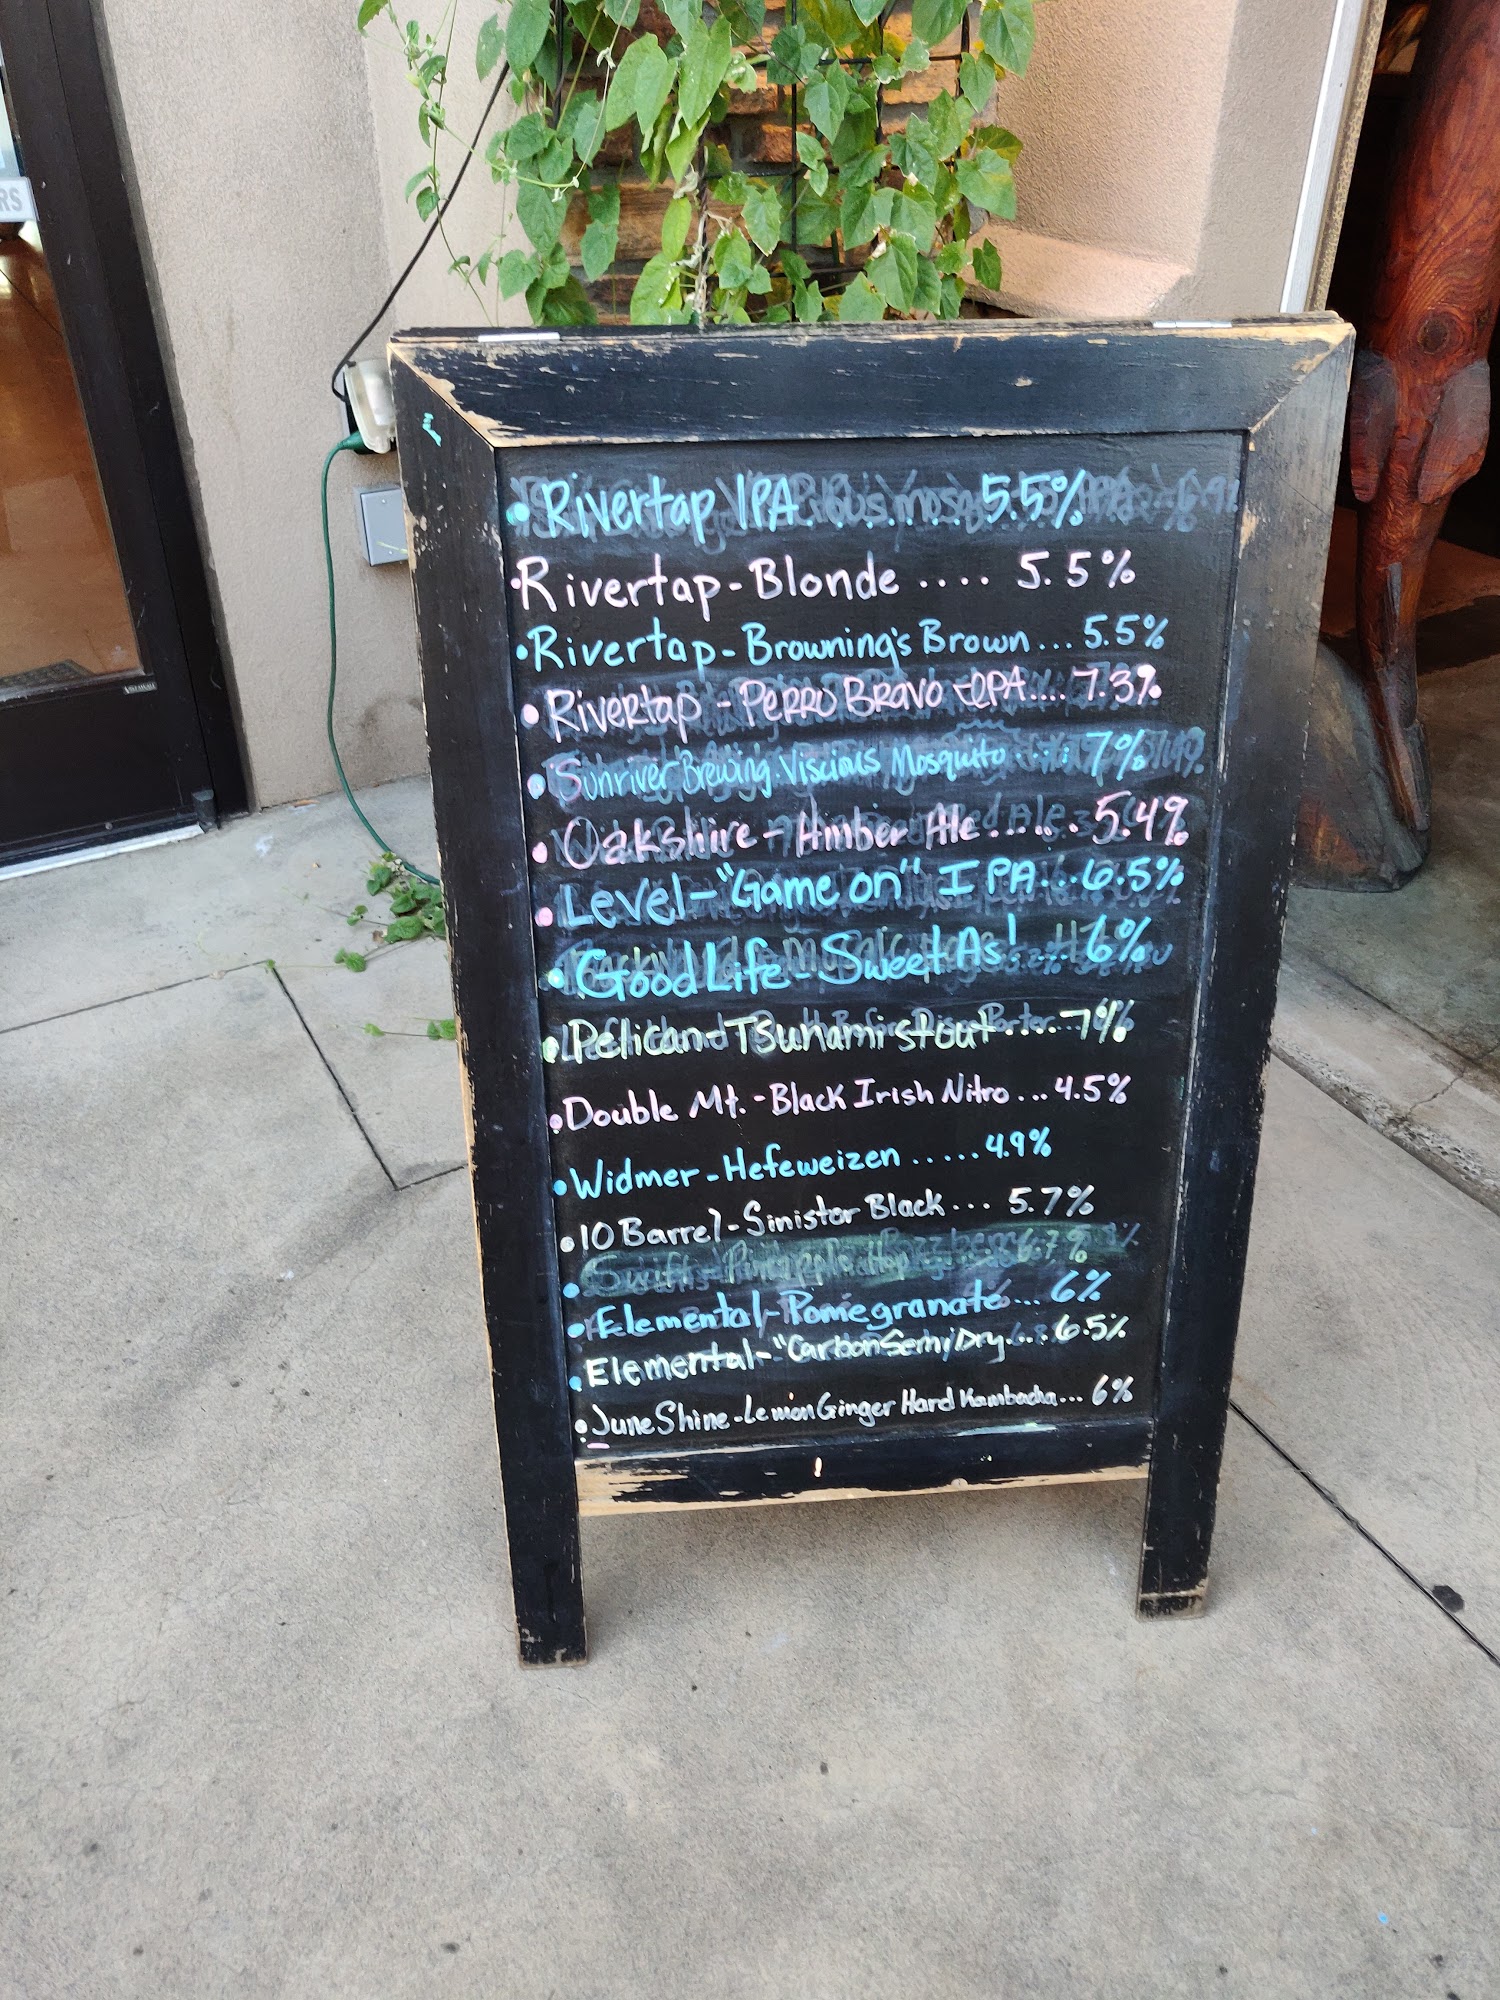 RS
Rivertap IPA........ 5.5%
Rivertap-Blonde .... 5.5%
Rivertap-Browning's Brown... 5.5%
Rivertap - Perro Bravo IPA.... 7.3%
Sunriver Brewing. Viscious Mosquito ..... 7%
Oakshire - Amber Ale...... 5.4%
Level-"Game on" IPA...6.5%
Good Life - Sweet As! ... 6%
Pelican-Tsunami stout .... 7%
Double Mt. - Black Irish Nitro... 4.5%
Widmer - Hefeweizen ..... 4.9%
10 Barrel - Sinistor Black.... 5.7%
Pineapple Hop 6.7%
Elemental-Pomegranate... 6%
Elemental-"Carbon Semi Dry.... 6.5%
June Shine - Lemon Ginger Hard Kambacha... 6%